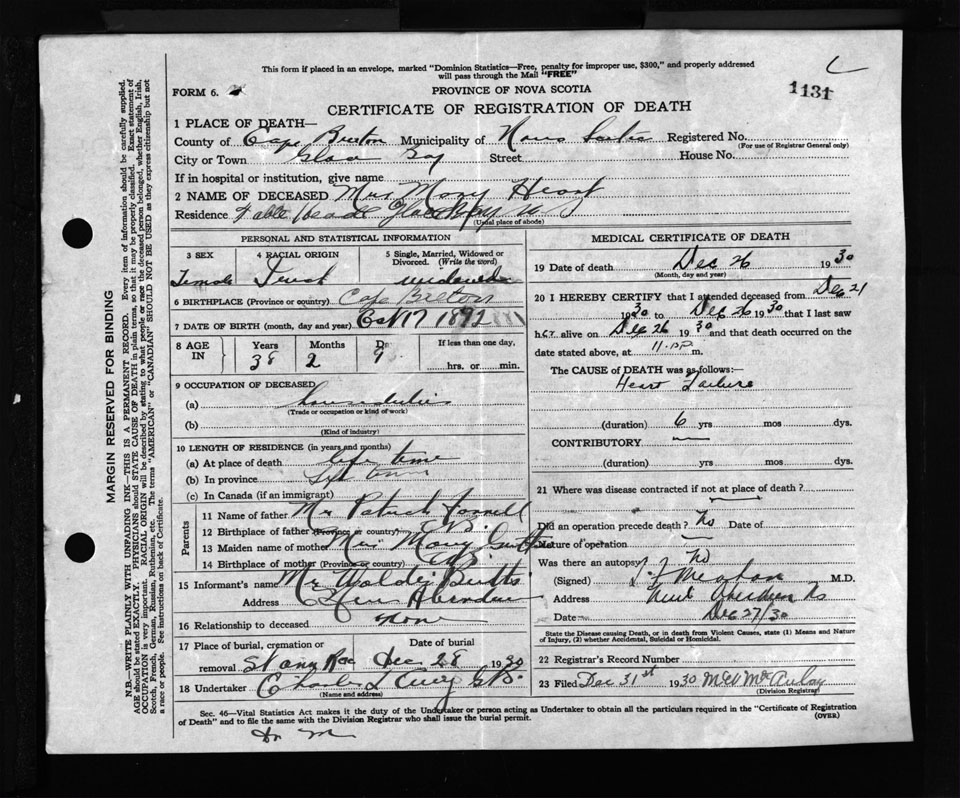 This form if placed in an envelope, marked "Dominion Statistics—Free, penalty for improper use, $300," and properly addressed
will pass through the Mail "FREE"
FORM 6.
PROVINCE OF NOVA SCOTIA
1131
CERTIFICATE OF REGISTRATION OF DEATH
1 PLACE OF DEATH—
County of Cape Breton Municipality of Nova Scotia Registered No.
(For use of Registrar General only)
City or Town Glace Bay Street House No.
If in hospital or institution, give name
2 NAME OF DECEASED Mrs Mary
Residence Table Head Glace Bay N S
(Usual place of abode)
PERSONAL AND STATISTICAL INFORMATION
3 SEX
Female
4 RACIAL ORIGIN
5 Single, Married, Widowed or Divorced. (Write the word)
6 BIRTHPLACE (Province or country) Cape Breton
7 DATE OF BIRTH (month, day and year) Oct 17 1892
8 AGE IN
Years
38
Months
2
9
If less than one day,
hrs. or min.
9 OCCUPATION OF DECEASED
(a)
(Trade or occupation or kind of work)
(b)
(Kind of industry)
10 LENGTH OF RESIDENCE (in years and months)
(a) At place of death life time
(b) In province
(c) In Canada (if an immigrant)
Parents
11 Name of father Mr Patrick
12 Birthplace of father (Province or country) C B
13 Maiden name of mother Mrs. Mary
14 Birthplace of mother (Province or country) C B
15 Informant's name Mr Butts
Address
16 Relationship to deceased none
17 Place of burial, cremation or
removal
Date of burial
Dec 28 1930
18 Undertaker Charles L Curry G B.
(Name and address)
MEDICAL CERTIFICATE OF DEATH
19 Date of death Dec 26 1930
(Month, day and year)
20 I HEREBY CERTIFY that I attended deceased from Dec 21
1930 to Dec 26 1930 that I last saw
her alive on Dec 26 1930 and that death occurred on
date stated above, at 11. m.
The CAUSE of DEATH was as follows:
Heart Failure
(duration) 6 yrs mos dys.
CONTRIBUTORY
(duration) yrs mos dys.
21 Where was disease contracted if not at place of death?
Did an operation precede death? No Date of
Nature of operation
Was there an autopsy? No
(Signed) M.D.
Address New Aberdeen NS
Date Dec 27/30
State the Disease causing Death, or in death from Violent Causes, state (1) Means and Nature of Injury, (2) whether Accidental, Suicidal or Homicidal.
22 Registrar's Record Number
23 Filed Dec 31st 1930 McAulay
(Division Registrar)
Sec. 46—Vital Statistics Act makes it the duty of the Undertaker or person acting as Undertaker to obtain all the particulars required in the "Certificate of Registration
of Death" and to file the same with the Division Registrar who shall issue the burial permit.
(OVER)
MARGIN RESERVED FOR BINDING
N.B.—WRITE PLAINLY WITH UNFADING INK—THIS IS A PERMANENT RECORD. Every item of information should be carefully supplied.
AGE should be stated EXACTLY. PHYSICIANS should STATE CAUSE OF DEATH in plain terms, so that it may be properly classified. Exact statement of
OCCUPATION is very important. RACIAL ORIGIN will be described by stating to what people or race the deceased person belonged, whether English, Irish,
Scotch, French, German, Russian, Ruthenian, etc. The terms "AMERICAN" or "CANADIAN" SHOULD NOT BE USED as they express citizenship but not
a race or people. See instructions on back of Certificate.